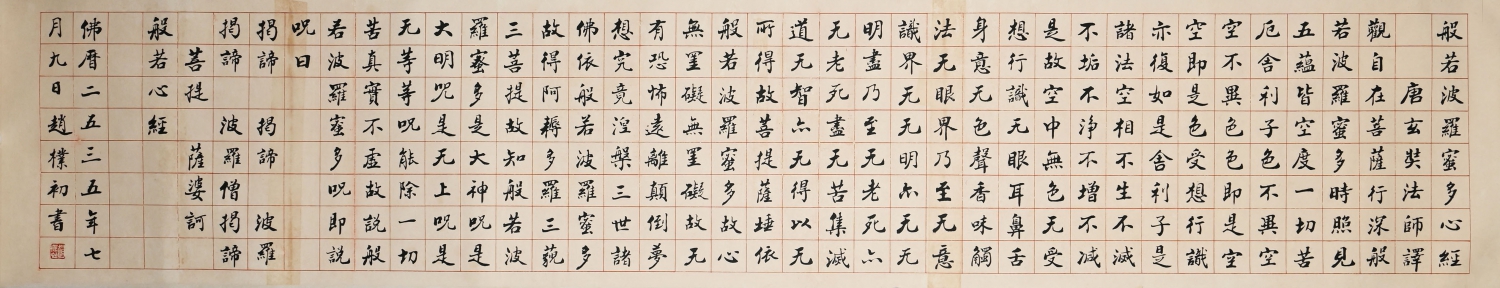 般若波羅蜜多心經
唐玄奘法師譯
觀自在菩薩行深般
若波羅蜜多時照見
五蘊皆空度一切苦
厄舍利子色不異空
空不異色色即是空
空即是色受想行識
亦復如是舍利子是
諸法空相不生不滅
不垢不淨不增不减
是故空中無色无受
想行識无眼耳鼻舌
身意无色聲香味觸
法无眼界乃至无意
識界无无明亦无无
明盡乃至无老死亦
无老死盡无苦集滅
道无智亦无得以无
所得故菩提薩埵依
般若波羅蜜多故心
無罣礙無罣礙故无
有恐怖遠離顛倒夢
想究竟涅槃三世諸
佛依般若波羅蜜多
故得阿耨多羅三藐
三菩提故知般若波
羅蜜多是大神呪是
大明呪是无上呪是
无等等呪能除一切
苦真實不虛故說般
若波羅蜜多呪即說
呪曰
揭諦 揭諦 波羅
揭諦 波羅僧揭諦
菩提 薩婆訶
般若心經
佛曆二五三五年七
月九日趙樸初書